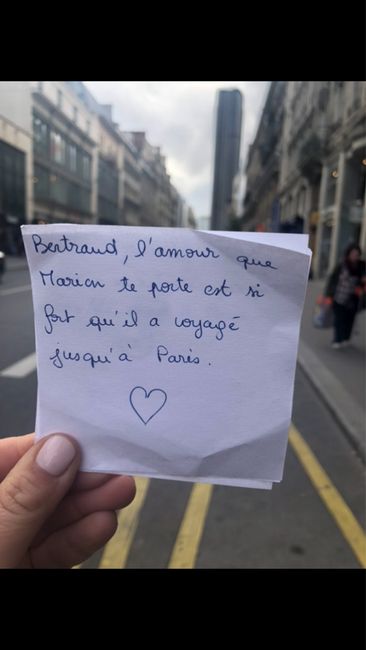 Bertraud, l'amour que
Marion te porte est si
fort qu'il a voyagé
jusqu'à Paris.